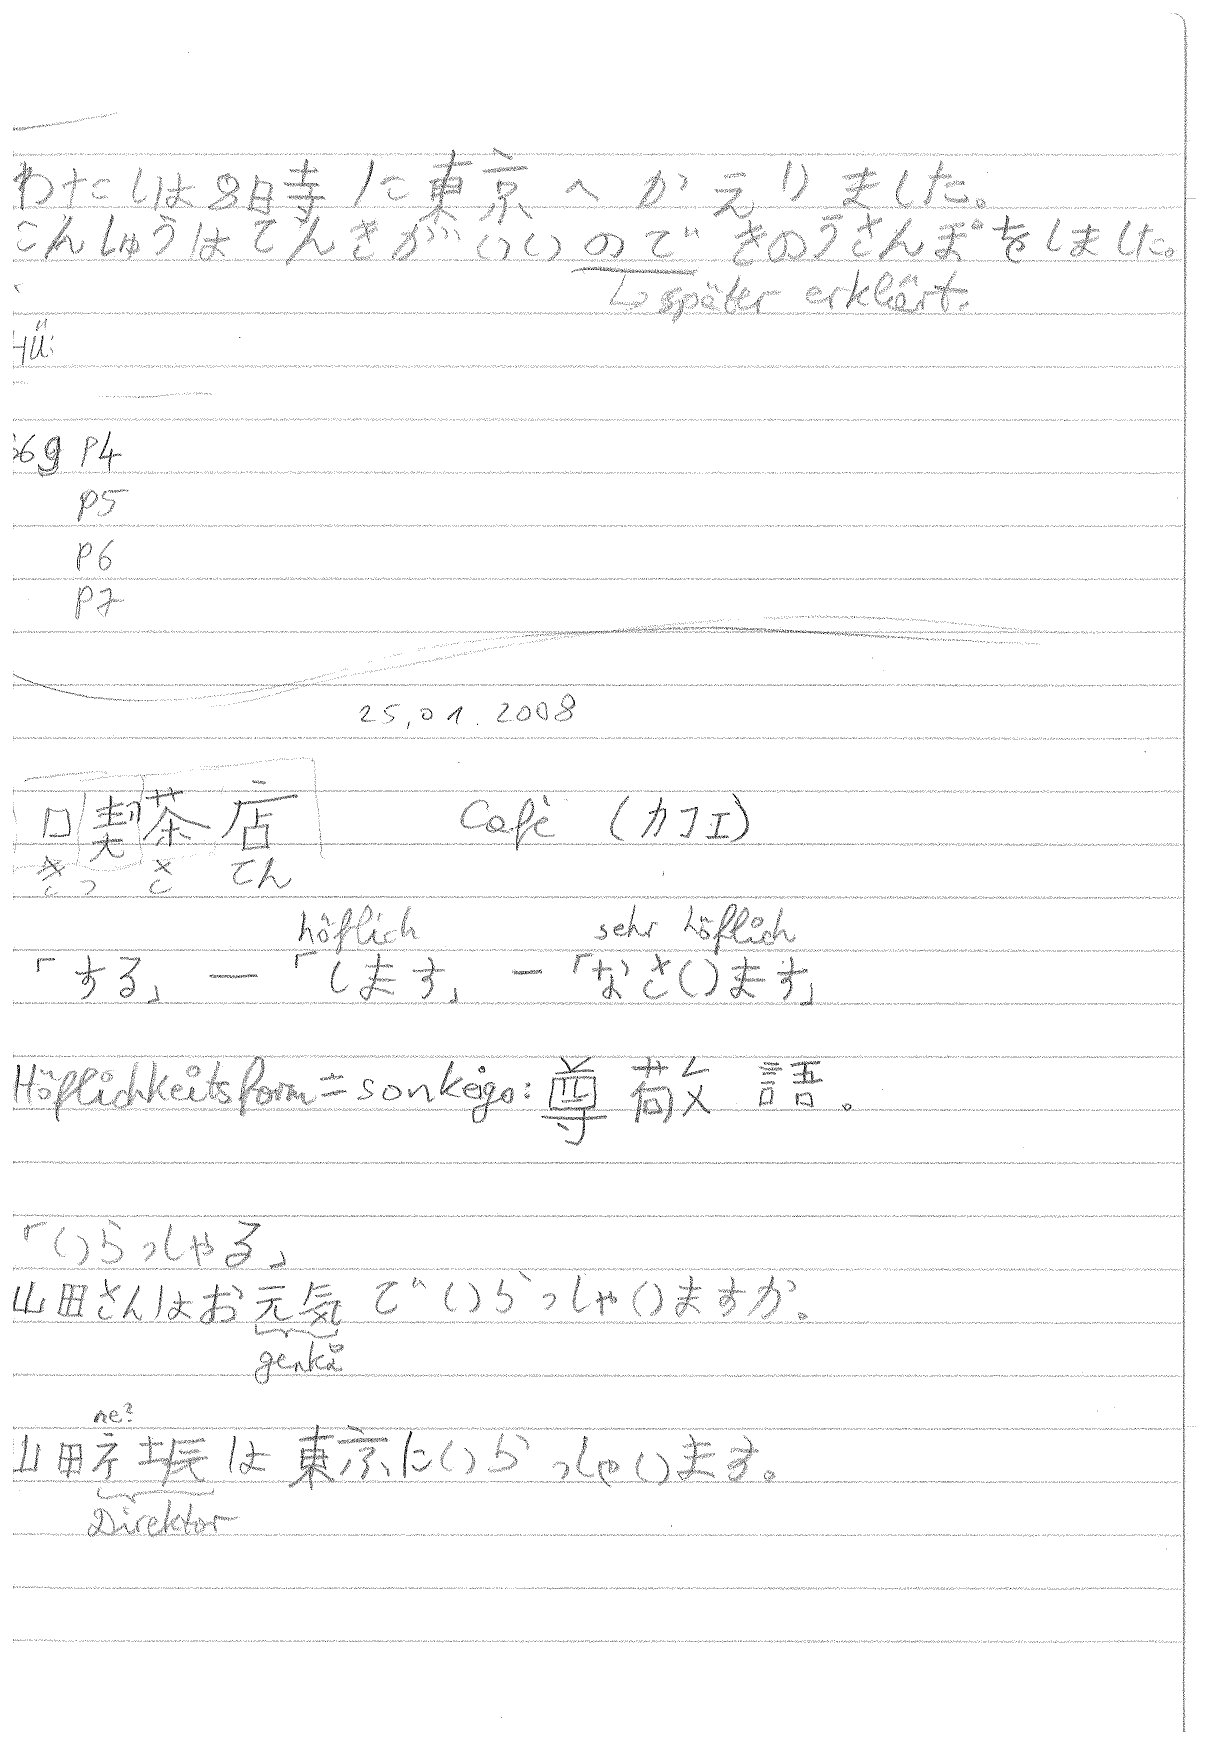 わたしは8時に東京へかえりました。
こんしゅうはてんきがいいのできのうさんぽをしました。
↳ später erklärt.
HÜ:
66g P4
P5
P6
P7
25.01.2008
喫茶店 Café (カフェ)
きっ さ てん
höflich sehr höflich
「する」―「します」―「なさいます」
Höflichkeitsform = sonkeigo: 尊敬語。
「いらっしゃる」
山田さんはお元気でいらっしゃいますか。
genki
ne?
山田社長は東京にいらっしゃいます。
Direktor